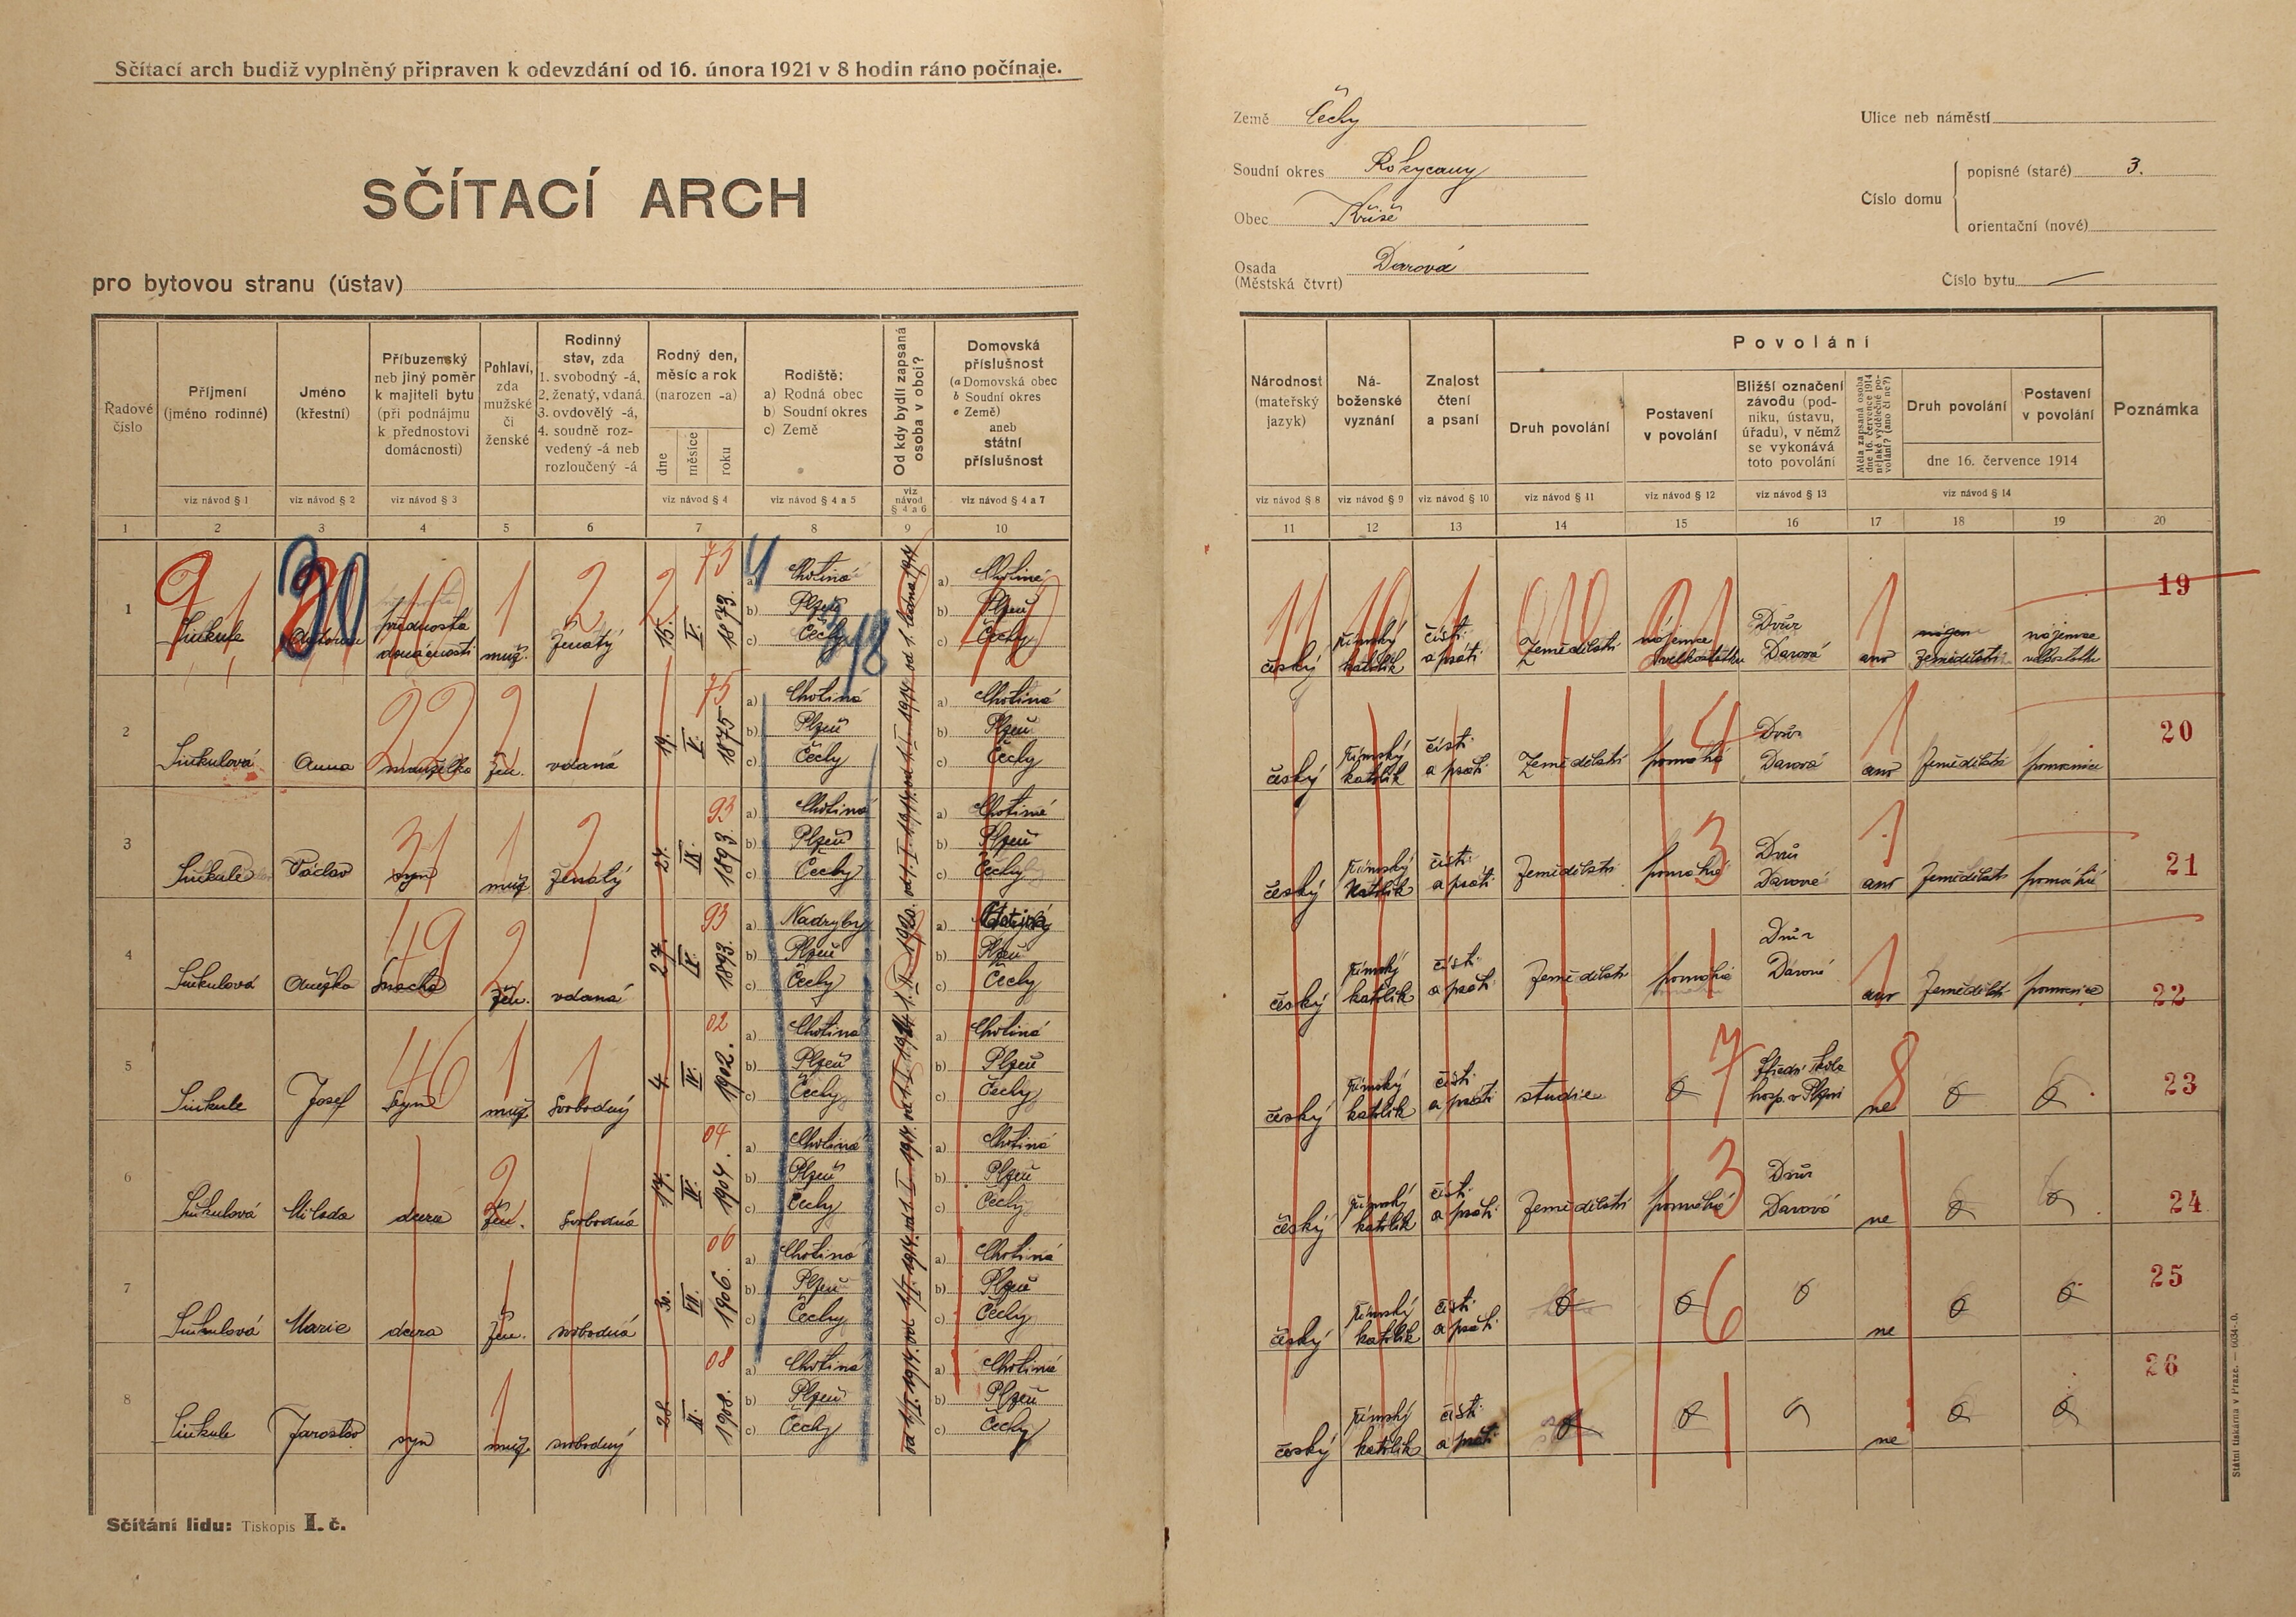 Sčítací arch budiž vyplněný připraven k odevzdání od 16. února 1921 v 8 hodin ráno počínaje.
SČÍTACÍ ARCH
pro bytovou stranu (ústav)
Země Čechy
Soudní okres Rokycany
Obec Kříše
Osada Darová
(Městská čtvrt)
Ulice neb náměstí
Číslo domu
popisné (staré) 3.
orientační (nové)
Číslo bytu —
Řadové číslo
Příjmení (jméno rodinné)
Jméno (křestní)
Příbuzenský neb jiný poměr k majiteli bytu (při podnájmu k přednostovi domácnosti)
Pohlaví, zda mužské či ženské
Rodinný stav, zda 1. svobodný -á, 2. ženatý, vdaná, 3. ovdovělý -á, 4. soudně rozvedený -á neb rozloučený -á
Rodný den, měsíc a rok (narozen -a)
dne měsíce roku
Rodiště: a) Rodná obec b) Soudní okres c) Země
Od kdy bydlí zapsaná osoba v obci?
Domovská příslušnost (a Domovská obec b Soudní okres c Země) aneb státní příslušnost
Národnost (mateřský jazyk)
Náboženské vyznání
Znalost čtení a psaní
Povolání
Druh povolání
Postavení v povolání
Bližší označení závodu (podniku, ústavu, úřadu), v němž se vykonává toto povolání
Měla zapsaná osoba dne 16. července 1914 nějaké výdělečné povolání? (ano či ne?)
Druh povolání
Postavení v povolání
dne 16. července 1914
Poznámka
viz návod § 1 viz návod § 2 viz návod § 3 viz návod § 4 viz návod § 4 a 5 viz návod § 4 a 6 viz návod § 4 a 7 viz návod § 8 viz návod § 9 viz návod § 10 viz návod § 11 viz návod § 12 viz návod § 13 viz návod § 14
1 2 3 4 5 6 7 8 9 10 11 12 13 14 15 16 17 18 19 20
1 Sinkule přednosta domácnosti muž. ženatý 15. V. 1873. a) Chotiná b) Plzeň c) Čechy od 1. ledna 1914 a) Chotiná b) Plzeň c) Čechy český římský katolík čísti a psáti Zemědělství nájemce velkostatku Dvůr Darová ano zemědělství nájemce velkostatku 19
2 Sinkulová Anna manželka žen. vdaná 19. V. 1875 a) Chotiná b) Plzeň c) Čechy od 1. I. 1914 a) Chotiná b) Plzeň c) Čechy český římský katolík čísti a psáti Zemědělství pomáhá Dvůr Darová ano Zemědělství pomocnice 20
3 Sinkule Václav syn muž ženatý 24. IX. 1893. a) Chotiná b) Plzeň c) Čechy od 1. I. 1914. a) Chotiná b) Plzeň c) Čechy český římský katolík čísti a psáti Zemědělství pomáhá Dvůr Darová ano Zemědělství pomáhá 21
4 Sinkulová Anežka Snacha žen. vdaná 27. IX. 1893. a) Nadryby b) Plzeň c) Čechy 1. II. 1920. a) b) Plzeň c) Čechy český římský katolík čísti a psáti Zemědělství pomáhá Dvůr Darová ano Zemědělství pomocnice 22
5 Sinkule Josef Syn muž Svobodný 4. IV. 1902. a) Chotiná b) Plzeň c) Čechy a) Chotiná b) Plzeň c) Čechy český římský katolík čísti a psáti studie Střední škola hosp. v Plzni ne 23
6 Sinkulová Milada dcera žen. Svobodná 17. IV. 1904. a) Chotiná b) Plzeň c) Čechy od 1. I. 1914. a) Chotiná b) Plzeň c) Čechy český římský katolík čísti a psáti Zemědělství pomáhá Dvůr Darová ne 24
7 Sinkulová Marie dcera žen. svobodná 30. VII. 1906. a) Chotiná b) Plzeň c) Čechy od 1/I. 1914. a) Chotiná b) Plzeň c) Čechy český římský katolík čísti a psáti ne 25
8 Sinkule Jaroslav syn muž. svobodný 28. 1908. a) Chotiná b) Plzeň c) Čechy od 1/I. 1914. a) Chotiná b) Plzeň c) Čechy český římský katolík čísti a psáti ne 26
Sčítání lidu: Tiskopis I. č.
Státní tiskárna v Praze. — 6034-0.